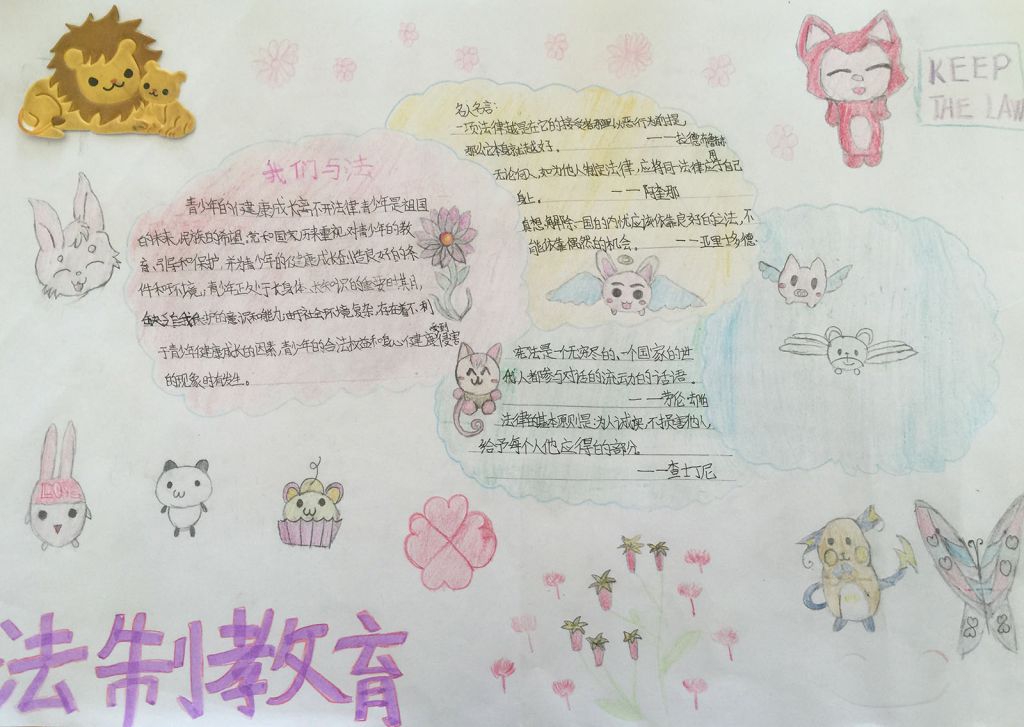 我们与法
青少年的健康成长离不开法律,青少年是祖国
的未来,民族的希望,党和国家历来重视对青少年的教
育、引导和保护,并为青少年的健康成长创造良好的条
件和环境。青少年正处于长身体、长知识的重要时期,
缺乏自我保护的意识和能力,由于社会环境复杂,存在着不利
于青少年健康成长的因素,青少年的合法权益和身心健康受到侵害
的现象时有发生。
名人名言:
一项法律越是在它的接受者那里以恶行为前提,
那么它本身就越好。——拉德布鲁赫
无论何人,如为他人制定法律,应将同一法律应用于自己
身上。——阿奎那
真想解除一国的内忧应该依靠良好的立法,不
能依靠偶然的机会。——亚里士多德
宪法是个无穷尽的、一个国家的世
代人都参与对话的流动的话语。
——劳伦·却伯
法律的基本原则是:为人诚实,不损害他人,
给予每个人他应得的部分。
——查士丁尼
KEEP
THE LAW
LOVE
法制教育